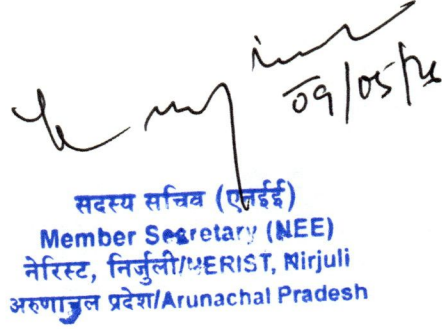 09/05/26
सदस्य सचिव (एनईई)
Member Secretary (NEE)
नेरिस्ट, निर्जुली/NERIST, Nirjuli
अरुणाचल प्रदेश/Arunachal Pradesh